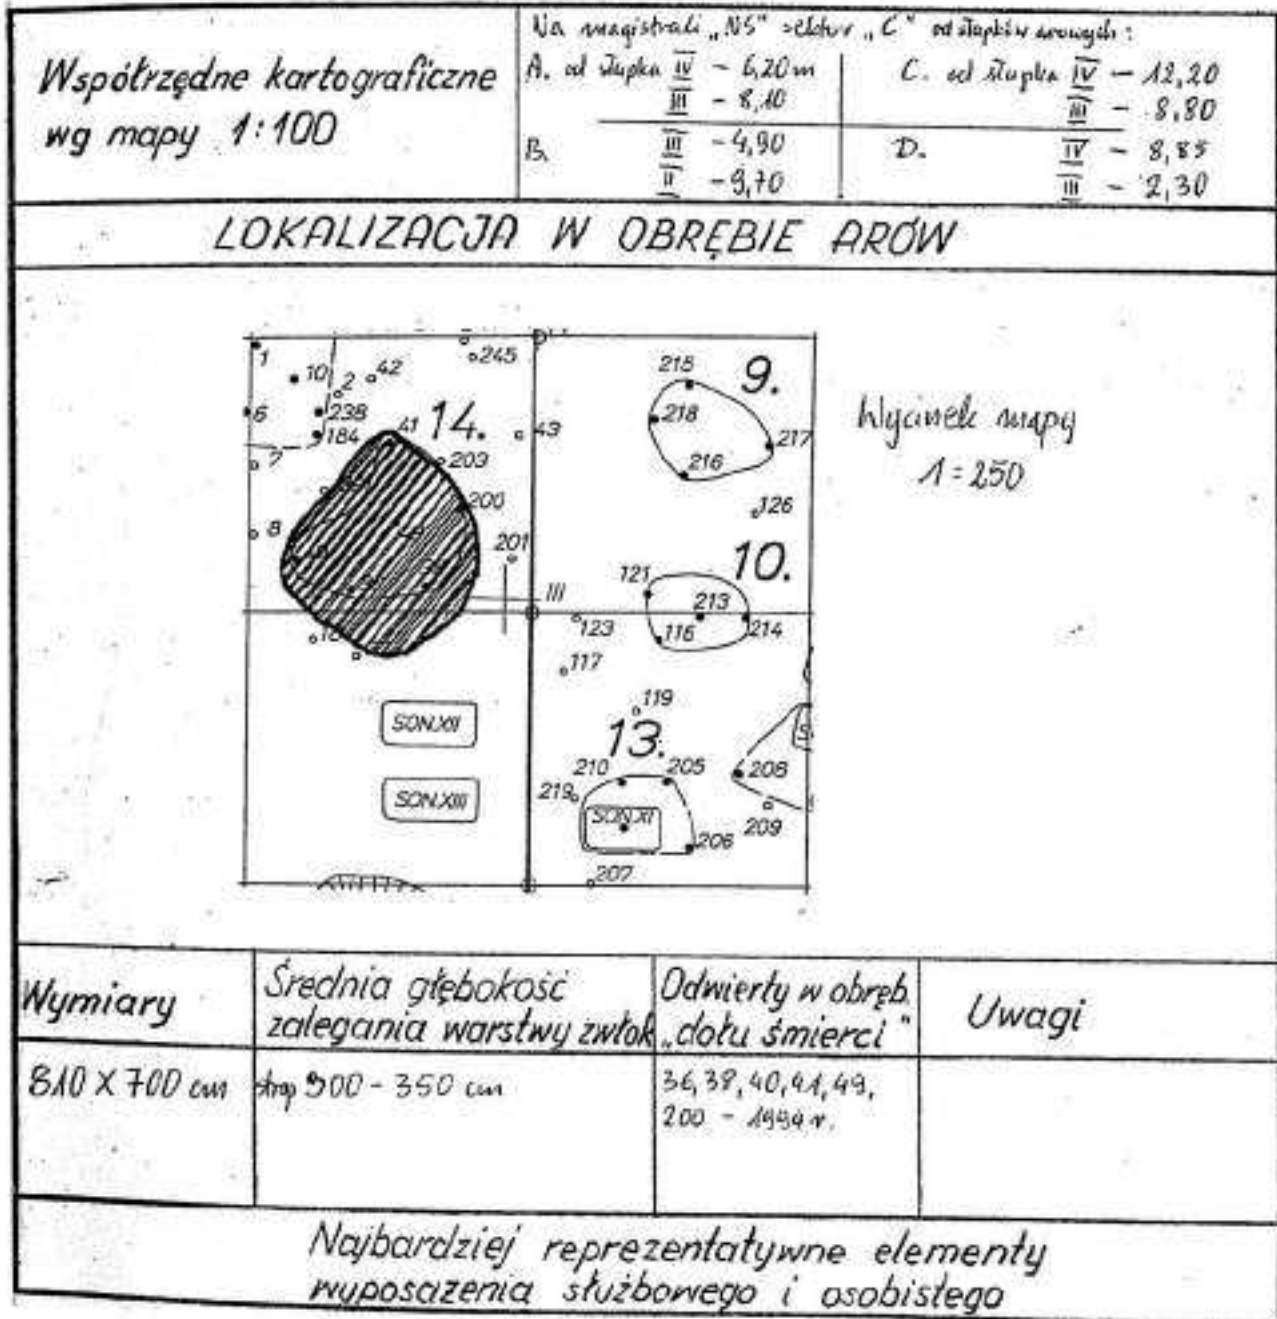 Współrzędne kartograficzne
wg mapy 1:100
Na magistrali „NS" sektor „C" od słupków arowych:
A. od słupka IV – 6,20 m
III – 8,10
B. III – 4,90
II – 9,70
C. od słupka IV – 12,20
III – 8,80
D. IV – 8,85
III – 2,30
LOKALIZACJA W OBRĘBIE ARÓW
1
10
2
42
245
6
238
184
41
14.
43
7
203
200
8
201
III
215
9.
218
217
216
126
10.
121
213
123
116
214
117
119
SON.XII
13.
210
205
208
SON.XIII
219
SON.XI
206
209
207
Wycinek mapy
1=250
Wymiary
Średnia głębokość
zalegania warstwy zwłok
Odwierty w obręb.
„dołu śmierci"
Uwagi
810 X 700 cm
strop 300 - 350 cm
36, 38, 40, 41, 49,
200 - 1994 r.
Najbardziej reprezentatywne elementy
wyposażenia służbowego i osobistego